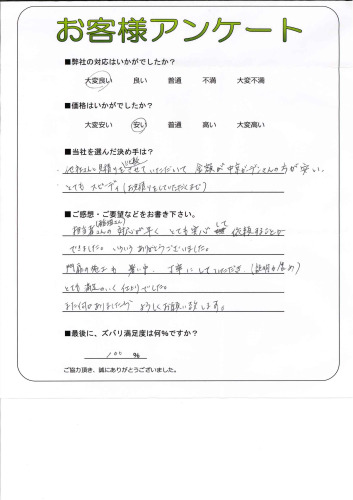 お客様アンケート
■弊社の対応はいかがでしたか?
大変良い 良い 普通 不満 大変不満
■価格はいかがでしたか?
大変安い 安い 普通 高い 大変高い
■当社を選んだ決め手は?
比較
他社さんに見積りをさせていただいて 金額が中京ガーデンさんの方が安い、
とても スピーディ(お見積りをしていただくまで)
■ご感想・ご要望などをお書き下さい。
担当者さんの 対応が早く とても安心して 依頼することが
できました。いろいろ ありがとうございました。
門扉の施工も 暑い中、丁寧に していただき、(説明も含め)
とても 満足のいく 仕上りでした。
また何かありましたら よろしくお願い致します。
■最後に、ズバリ満足度は何%ですか?
100 %
ご協力頂き、誠にありがとうございました。